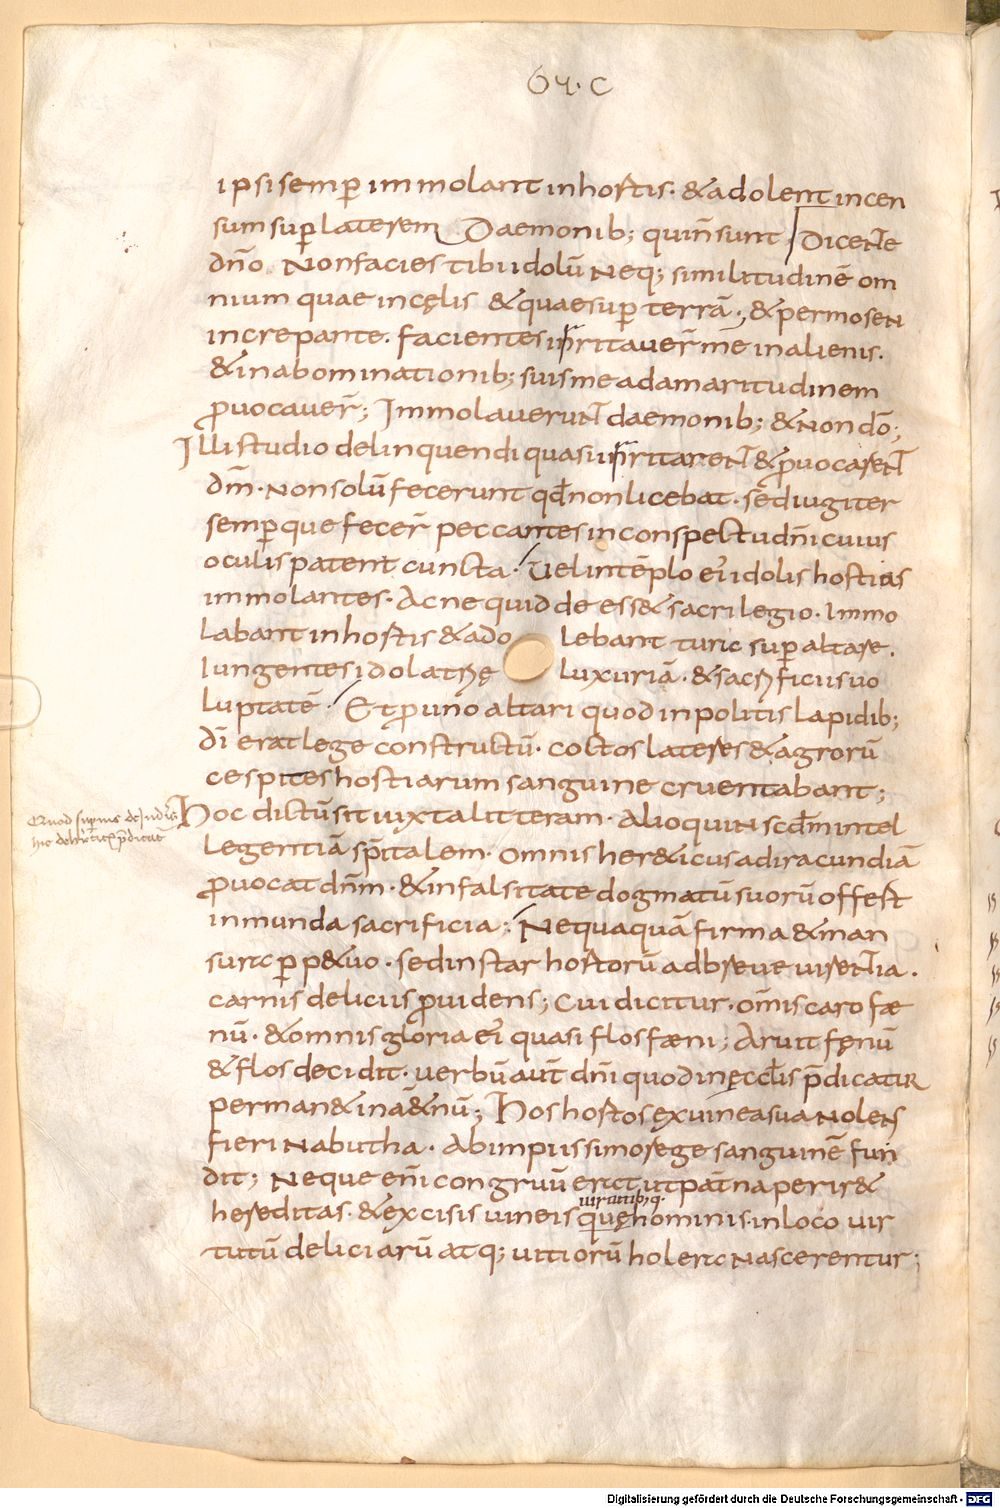 64. C
ipsi semp̄ immolant in hostis. & adolent incen
sum sup̄ laterem Daemonib; qui n̄ sunt / Dicente
dn̄o. Non facies tibi idolū neq; similitudinē om
nium quae in cęlis & quae sup̄ terrā. & per mosen
increpante. facientes irritaver̄ me in alienis.
& in abominationib; suis me ad amaritudinem
ꝓvocaver̄; Immolaverunt daemonib; & non dō;
Illi studio delinquendi quasi irritarent & ꝓvocarent
dm̄. Non solū fecerunt qđ non licebat. sed iugiter
semp̄ que fecer̄ peccantes in conspectu dn̄i cuius
oculis patent cuncta. Vel in tēplo ei' idolis hostias
immolantes. Ac ne quid deess& sacrilegio. Immo
labant in hostis & ado lebant turic sup̄ altare.
Iungentes idolatrię luxuriā. & sacrificiis vo
luptatē. Et ꝓ uno altari quod inpolitis lapidib;
di' erat lege constructū. coctos lateres & agrorū
cespites hostiarum sanguine cruentabant;
Quod superius de iudęis
hic de hereticis p̄dicat
Hoc dictū sit iuxta litteram. Alioquin scđm intel
legentiā sp̄italem. omnis her&icus ad iracundiā
ꝓvocat dn̄m. & in falsitate dogmatū suorū offert
inmunda sacrificia; Nequaquā firma & man
surc p̄p&uo. sed instar hostorū ad breve virentia.
carnis deliciis ꝓvidens; Cui dicitur. om̄is caro fæ
nū. & omnis gloria ei' quasi flos fæni; Aruit fęnū
& flos decidit. verbū aut̄ dn̄i quod in ęccl̄is p̄dicatur
perman& in ā&nū; Hos hostos ex vinea sua nolens
fieri Nabutha. Ab impiissimo rege sanguinē fun
dit; Neque eni' congruū erat ut pat̄na perir&
hereditas. & excisis vineis quę hominis in loco vir
virtutib; q.
tutū deliciarū atq; vitiorū holerc nascerentur;
Digitalisierung gefördert durch die Deutsche Forschungsgemeinschaft - DFG